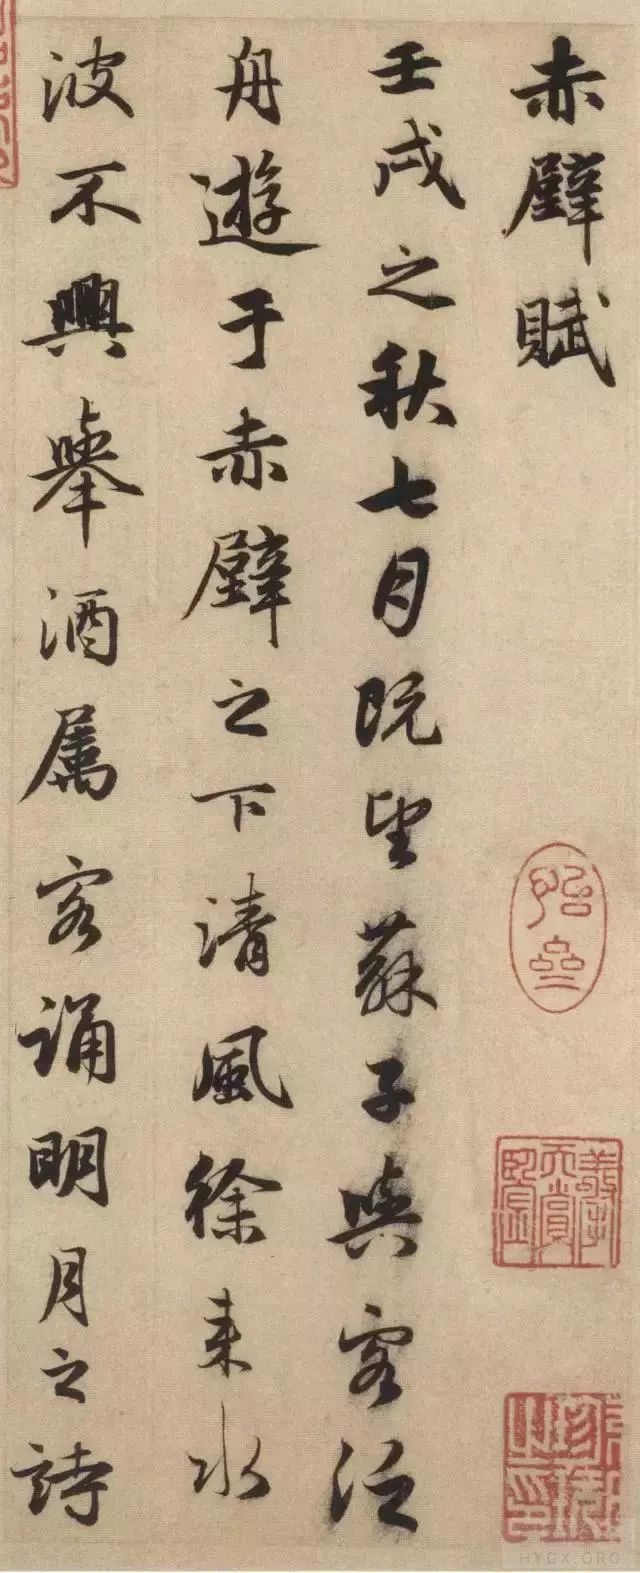 赤壁賦
壬戌之秋七月既望蘇子與客泛
舟遊于赤壁之下清風徐来水
波不興舉酒属客誦明月之詩
HYGX.ORG